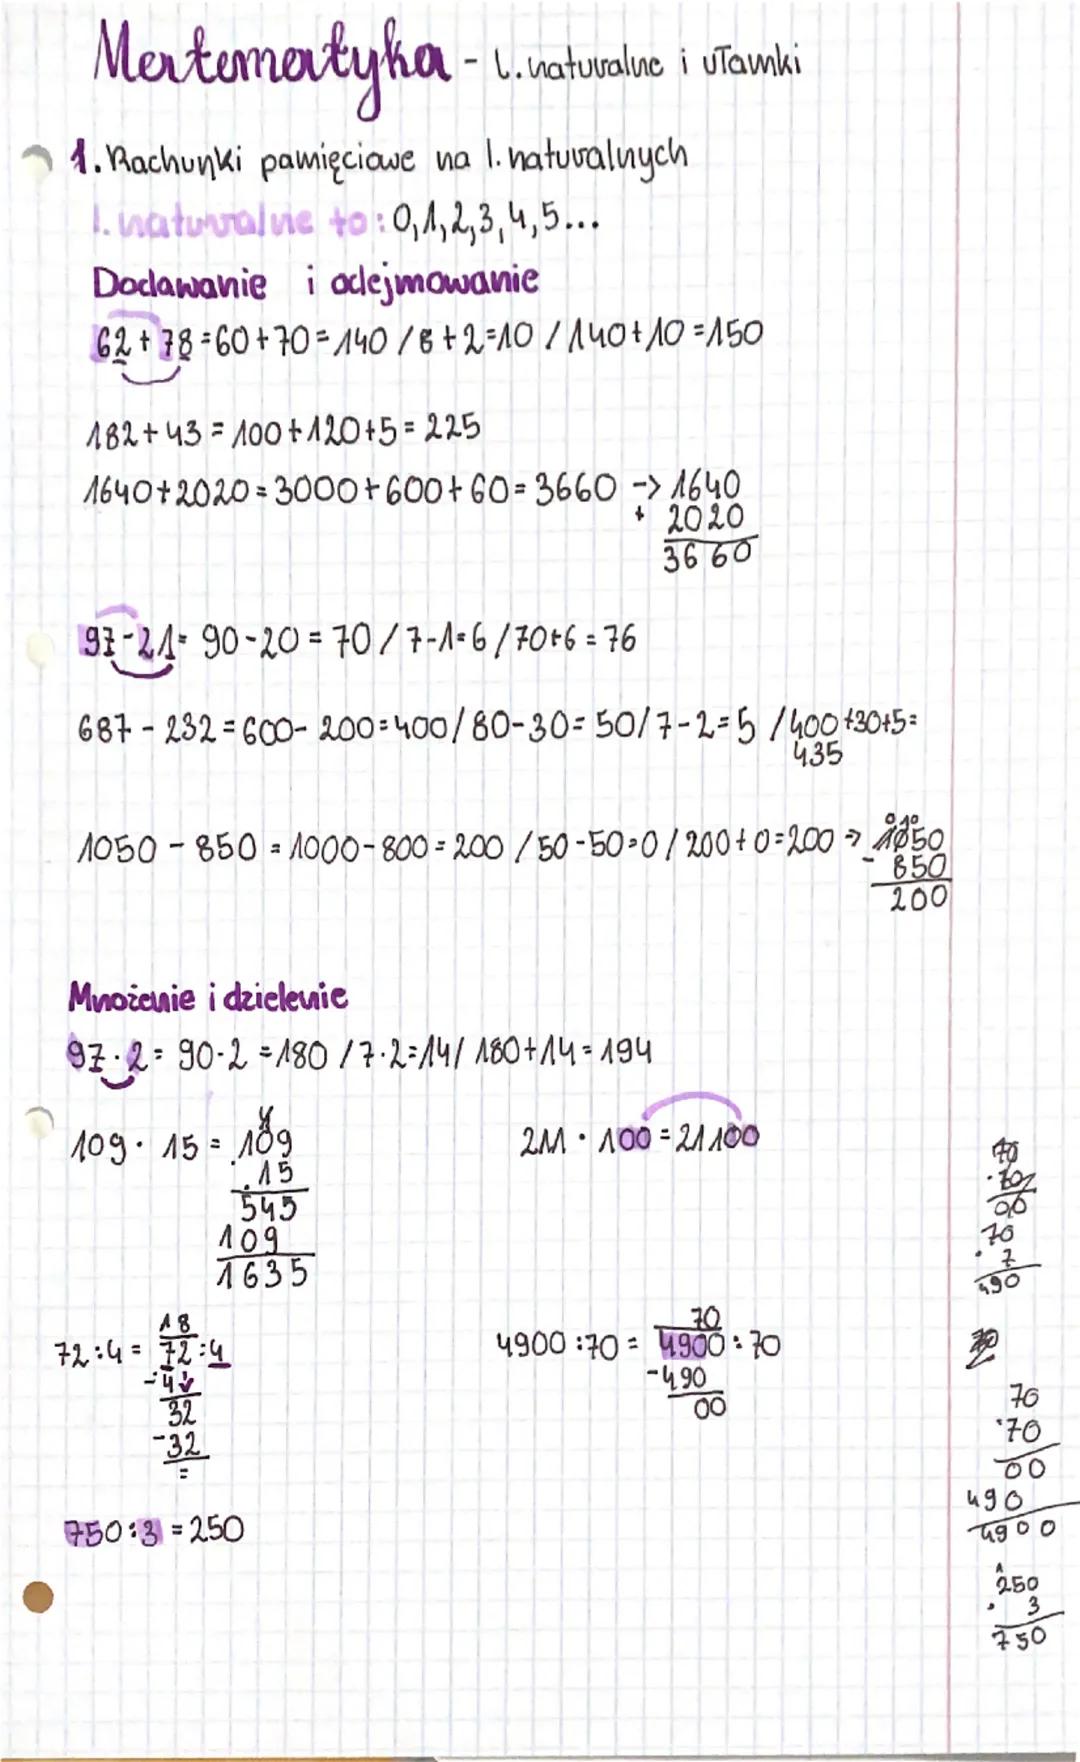 Matematyka - l. naturalne i ułamki
1. Rachunki pamięciowe na l. naturalnych
l. naturalne to: 0,1,2,3,4,5...
Dodawanie i odejmowanie
62 + 78 = 60 + 70 = 140 / 8 + 2 = 10 / 140 + 10 = 150
182 + 43 = 100 + 120 + 5 = 225
1640 + 2020 = 3000 + 600 + 60 = 3660 -> 1640
+ 2020
3660
97 - 21 = 90 - 20 = 70 / 7 - 1 = 6 / 70 + 6 = 76
687 - 232 = 600 - 200 = 400 / 80 - 30 = 50 / 7 - 2 = 5 / 400 + 30 + 5 =
435
1050 - 850 = 1000 - 800 = 200 / 50 - 50 = 0 / 200 + 0 = 200 -> 1050
0 10
- 850
200
Mnożenie i dzielenie
97 · 2 = 90 · 2 = 180 / 7 · 2 = 14 / 180 + 14 = 194
4
109 · 15 = 109
· 15
545
109
1635
211 · 100 = 21100
18
72 : 4 = 72 : 4
- 4
32
- 32
=
70
4900 : 70 = 4900 : 70
- 490
00
750 : 3 = 250
70
· 70
00
70
· 7
490
70
· 70
00
490
4900
1
250
· 3
750